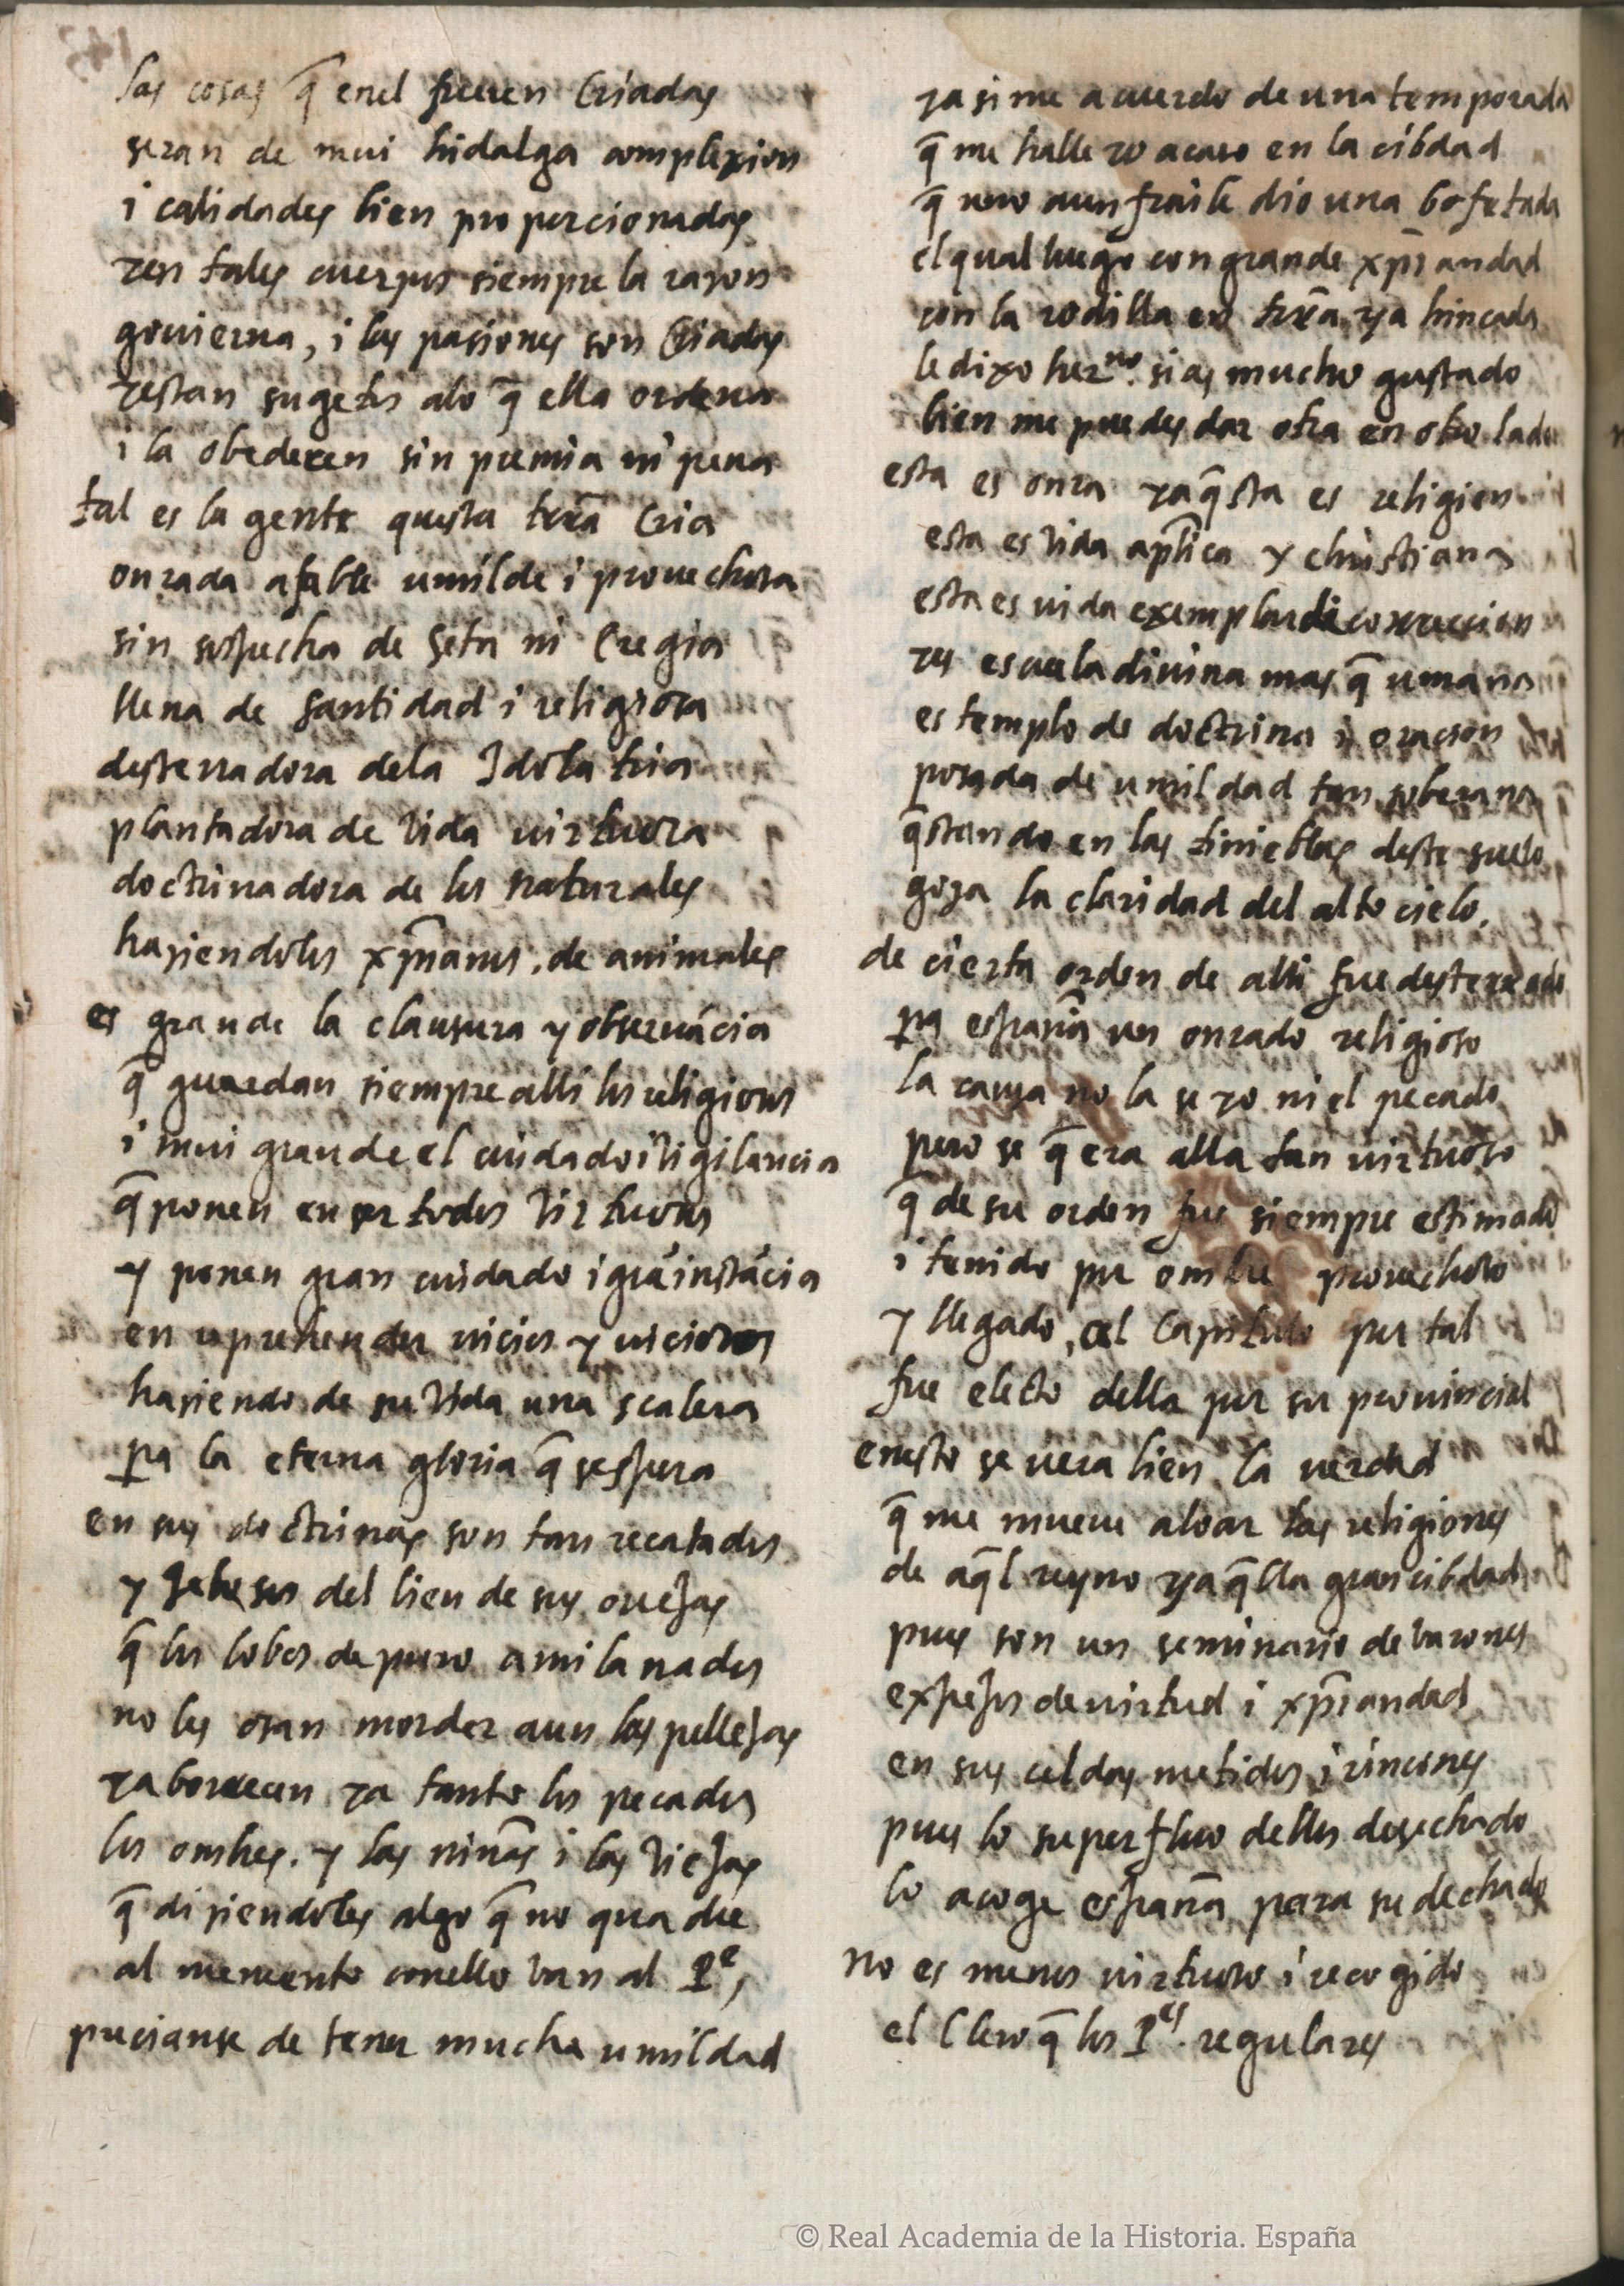 las cosas q̄ enel fueren Criadas
seran de mui hidalga complexion
i calidades bien proporcionadas
yen tales cuerpos siempre la rason
govierna, i las pasiones son Criadas
yestan sugetas alo q̄ ella ordena
i la obedecen sin premia ni pena
tal es la gente questa trr̄a Cria
onrada afable umilde i provechosa
sin sospecha de Seta ni Eregia
llena de santidad i religiosa
desterradora dela Idolatria
plantadora de Vida virtuosa
doctrinadora de los naturales
hasiendolos xp̄ianos. de animales
es grande la clausura y observācia
q̄ guardan siempre alli los religiosos
i mui grande el cuidado i Vigilancia
q̄ ponen en ser todos Virtuosos
y ponen gran cuidado i grā instācia
en reprehender vicios y viciosos
hasiendo de su Vida una scalera
pa la eterna gloria q̄ sespera
en sus doctrinas son tan recatados
y zelosos del bien de sus ovejas
q̄ los lobos de puro amilanados
no les osan morder aun las pellejas
yaborrecen ya tanto los pecados
los ombres. y las niñas i las Viejas
q̄ disiendoles algo q̄ no quadre
al momento conello van al Pᵉ,
precianse de tener mucha umildad
yasi me acuerdo de una temporada
q̄ me halle yo acaso en la cibdad
q̄ uno aun fraile dio una bofetada
el qual luego con grande xp̄iandad
con la rodilla en trr̄a ya hincada
le dixo herⁿᵒ. si as mucho gustado
bien me puedes dar otra en otro lado
esta es onra yaq̄sta es religion
esta es Vida aplīca y christiana
esta es vida exemplar di correccion
yes escuela divina mas q̄ umana
es templo de doctrina i oracion
posada de umildad tan soberana
q̄stando en las tinieblas deste suelo
goza la claridad del alto cielo.
de cierta orden de alli fue desterrado
pa españa un onrado religioso
la causa no la se yo ni el pecado
pero se q̄ era alla tan virtuoso
q̄ de su orden fue siempre estimado
i tenido por ombre provechoso
y llegado, al Capitulo por tal
fue electo della por su provincial
enesto se vera bien la verdad
q̄ me mueve aloar las religiones
de aq̄l reyno yaq̄lla gran cibdad
pues son un seminario de varones
expejos de virtud i xp̄iandad
en sus celdas metidos i rincones
pues lo superfluo dellos desechado
lo acoge españa para su dechado
no es menos virtuoso i recogido
el Clero q̄ los Pᵉˢ. regulares
© Real Academia de la Historia. España